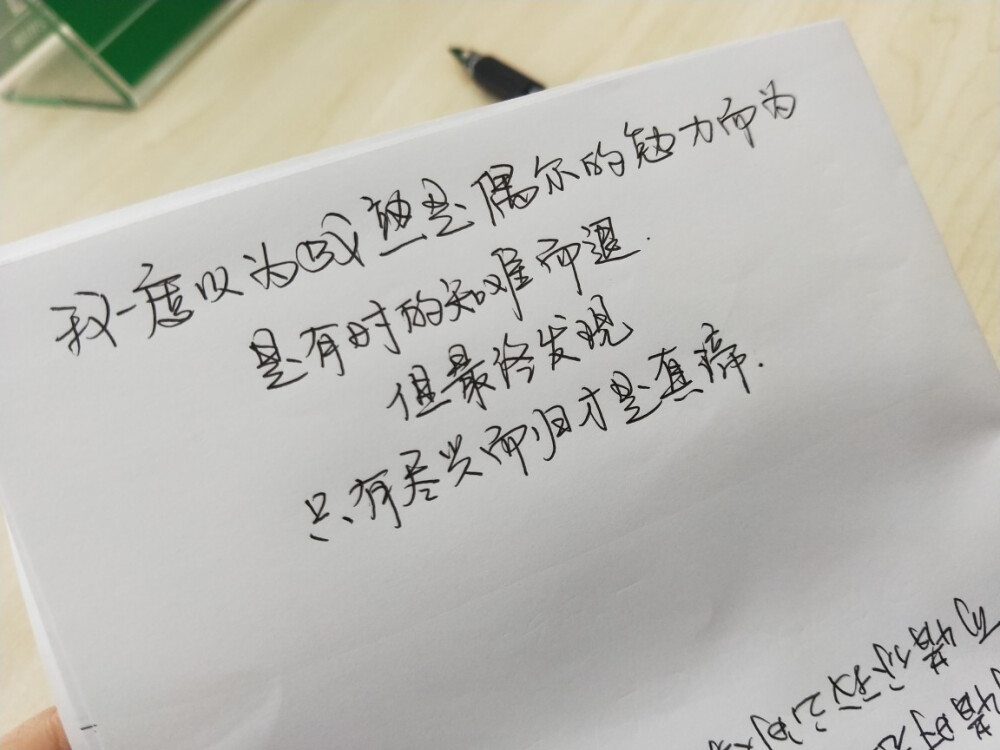 我一度以为成熟是偶尔的勉力而为
是有时的知难而退.
但最终发现
只有尽兴而归才是真谛.